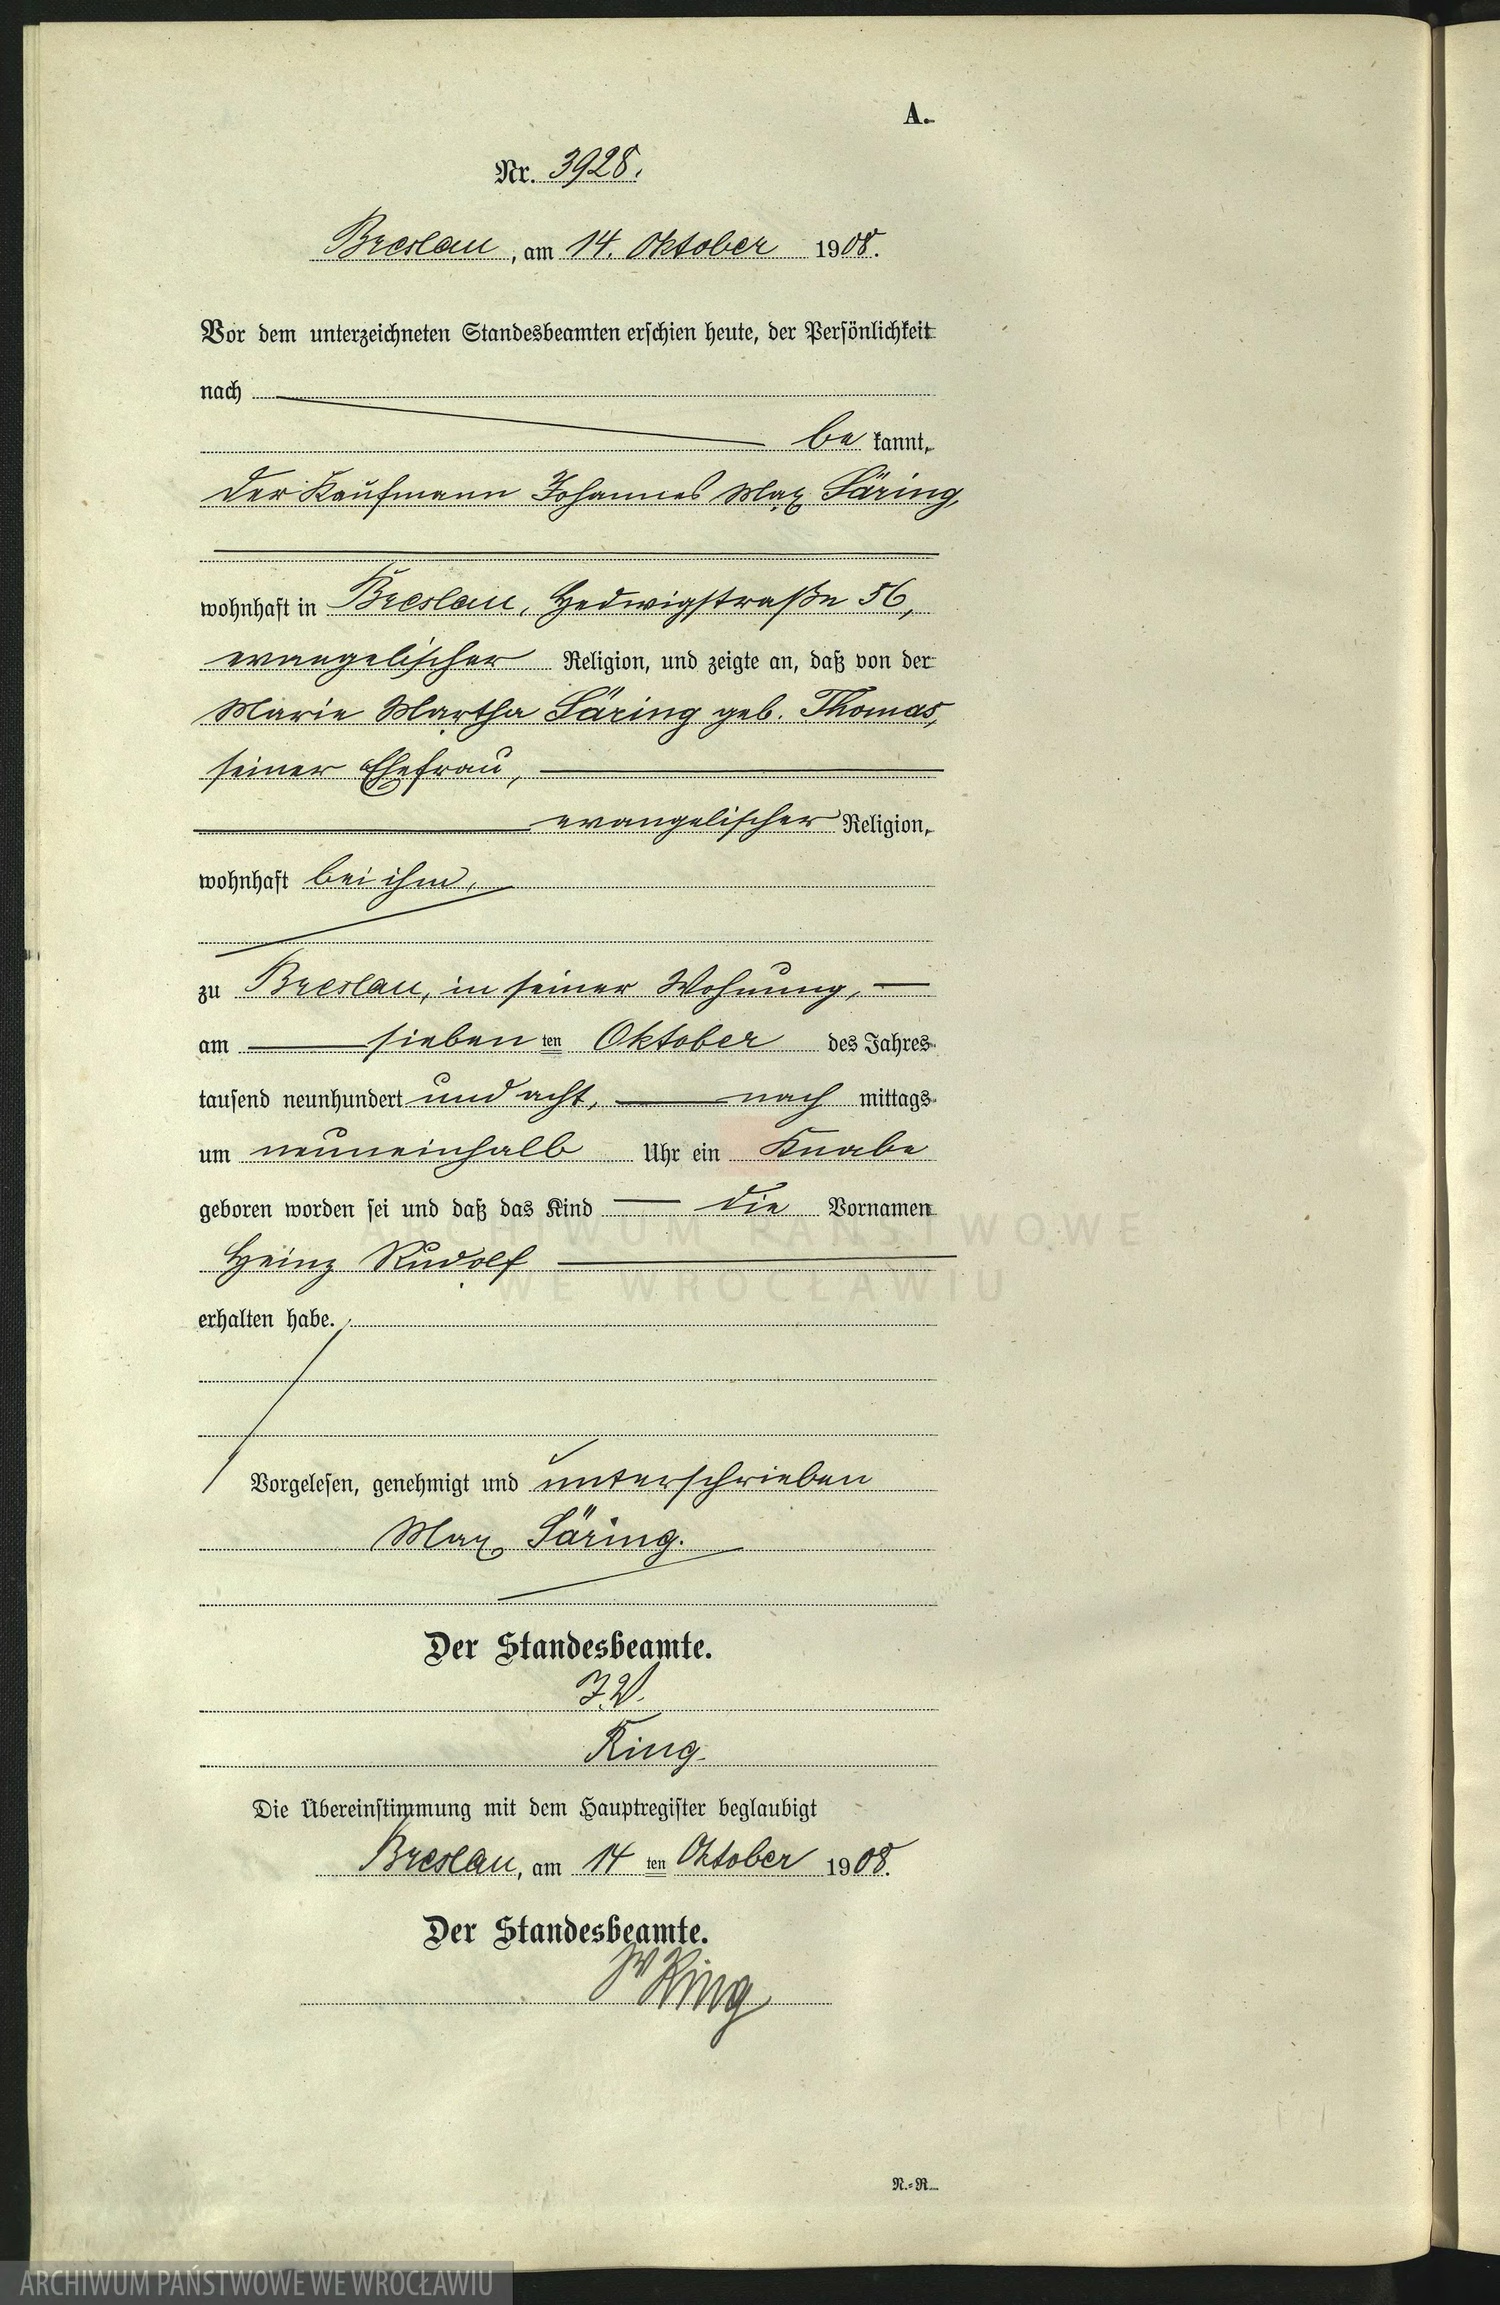 A.
Nr. 3928.
Breslau, am 14. Oktober 1908.
Vor dem unterzeichneten Standesbeamten erschien heute, der Persönlichkeit
nach
be kannt,
der Kaufmann Johannes Max Säring,
wohnhaft in Breslau, Hedwigstraße 56,
evangelischer Religion, und zeigte an, daß von der
Marie Martha Säring geb. Thomas,
seiner Ehefrau,
evangelischer Religion,
wohnhaft bei ihm,
zu Breslau, in seiner Wohnung,
am sieben ten Oktober des Jahres
tausend neunhundert und acht, nach mittags
um neuneinhalb Uhr ein Knabe
geboren worden sei und daß das Kind die Vornamen
Heinz Rudolf
erhalten habe.
Vorgelesen, genehmigt und unterschrieben
Max Säring.
Der Standesbeamte.
J.V.
Ring.
Die Übereinstimmung mit dem Hauptregister beglaubigt
Breslau, am 14 ten Oktober 1908.
Der Standesbeamte.
JV Ring
N.=R.
ARCHIWUM PAŃSTWOWE
WE WROCŁAWIU
ARCHIWUM PAŃSTWOWE WE WROCŁAWIU